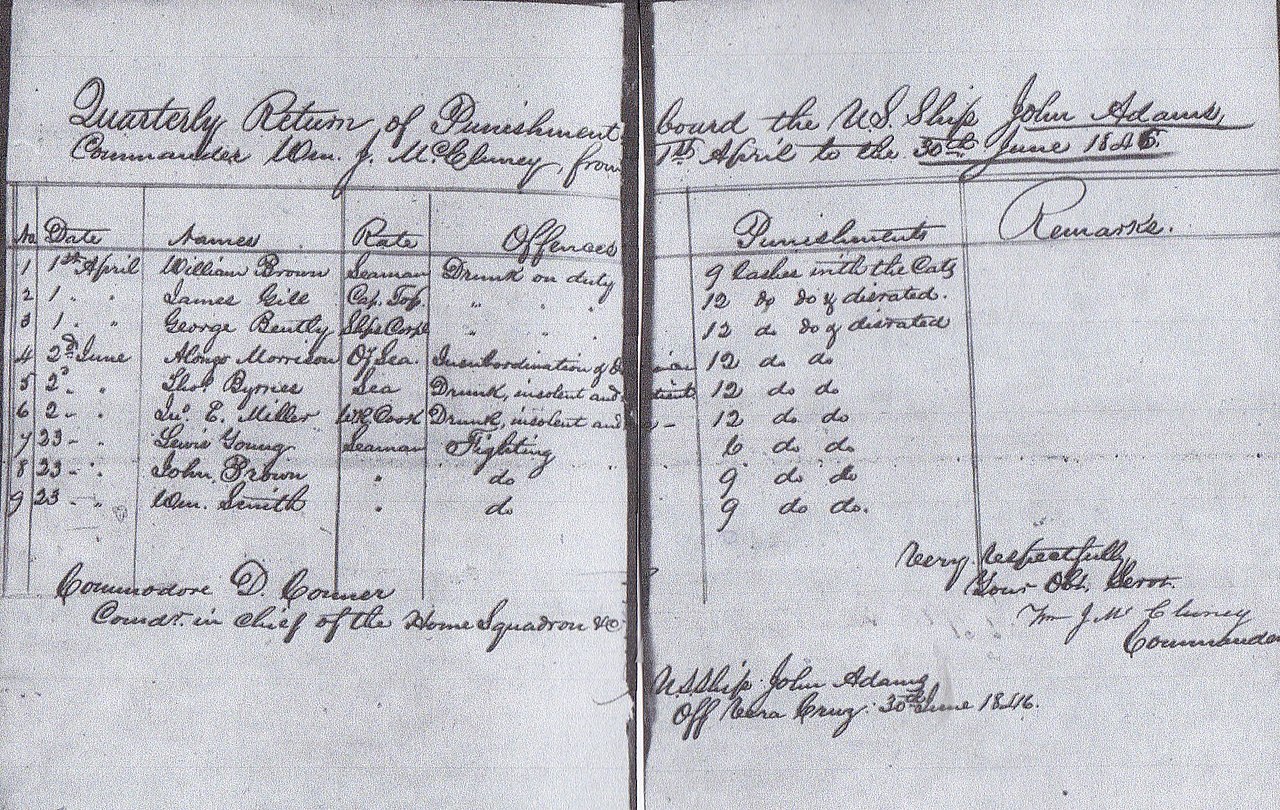 Quarterly Return of Punishment board the U.S. Ship John Adams,
Commander Wm. J. McCluney, from 1st April to the 30th June 1846.
No Date Names Rate Offences Punishments Remarks.
1 1st April William Brown Seaman Drunk on duty 9 Lashes with the Cats
2 1. " James Gill Cap. Top " " " 12 do do & disrated.
3 1. " George Bently Ships Corpl " " " 12 do do & disrated
4 2d June Alonzo Morrison Od Sea. Insubordination & 12 do do
5 2d " Thos. Byrnes Sea Drunk, insolent and 12 do do
6 2 - " Jno. E. Miller WR Cook Drunk, insolent and 12 do do
7 23 - " Lewis Young Seaman Fighting 6 do do
8 23 - " John Brown " do 9 do do
9 23 - " Wm. Smith " do 9 do do.
Very respectfully
Your Obt. Servt.
Wm J. Mc Cluney
Commander
Commodore D. Conner
Comdr. in chief of the Home Squadron &c
U.S. Ship John Adams
Off Vera Cruz. 30th June 1846.